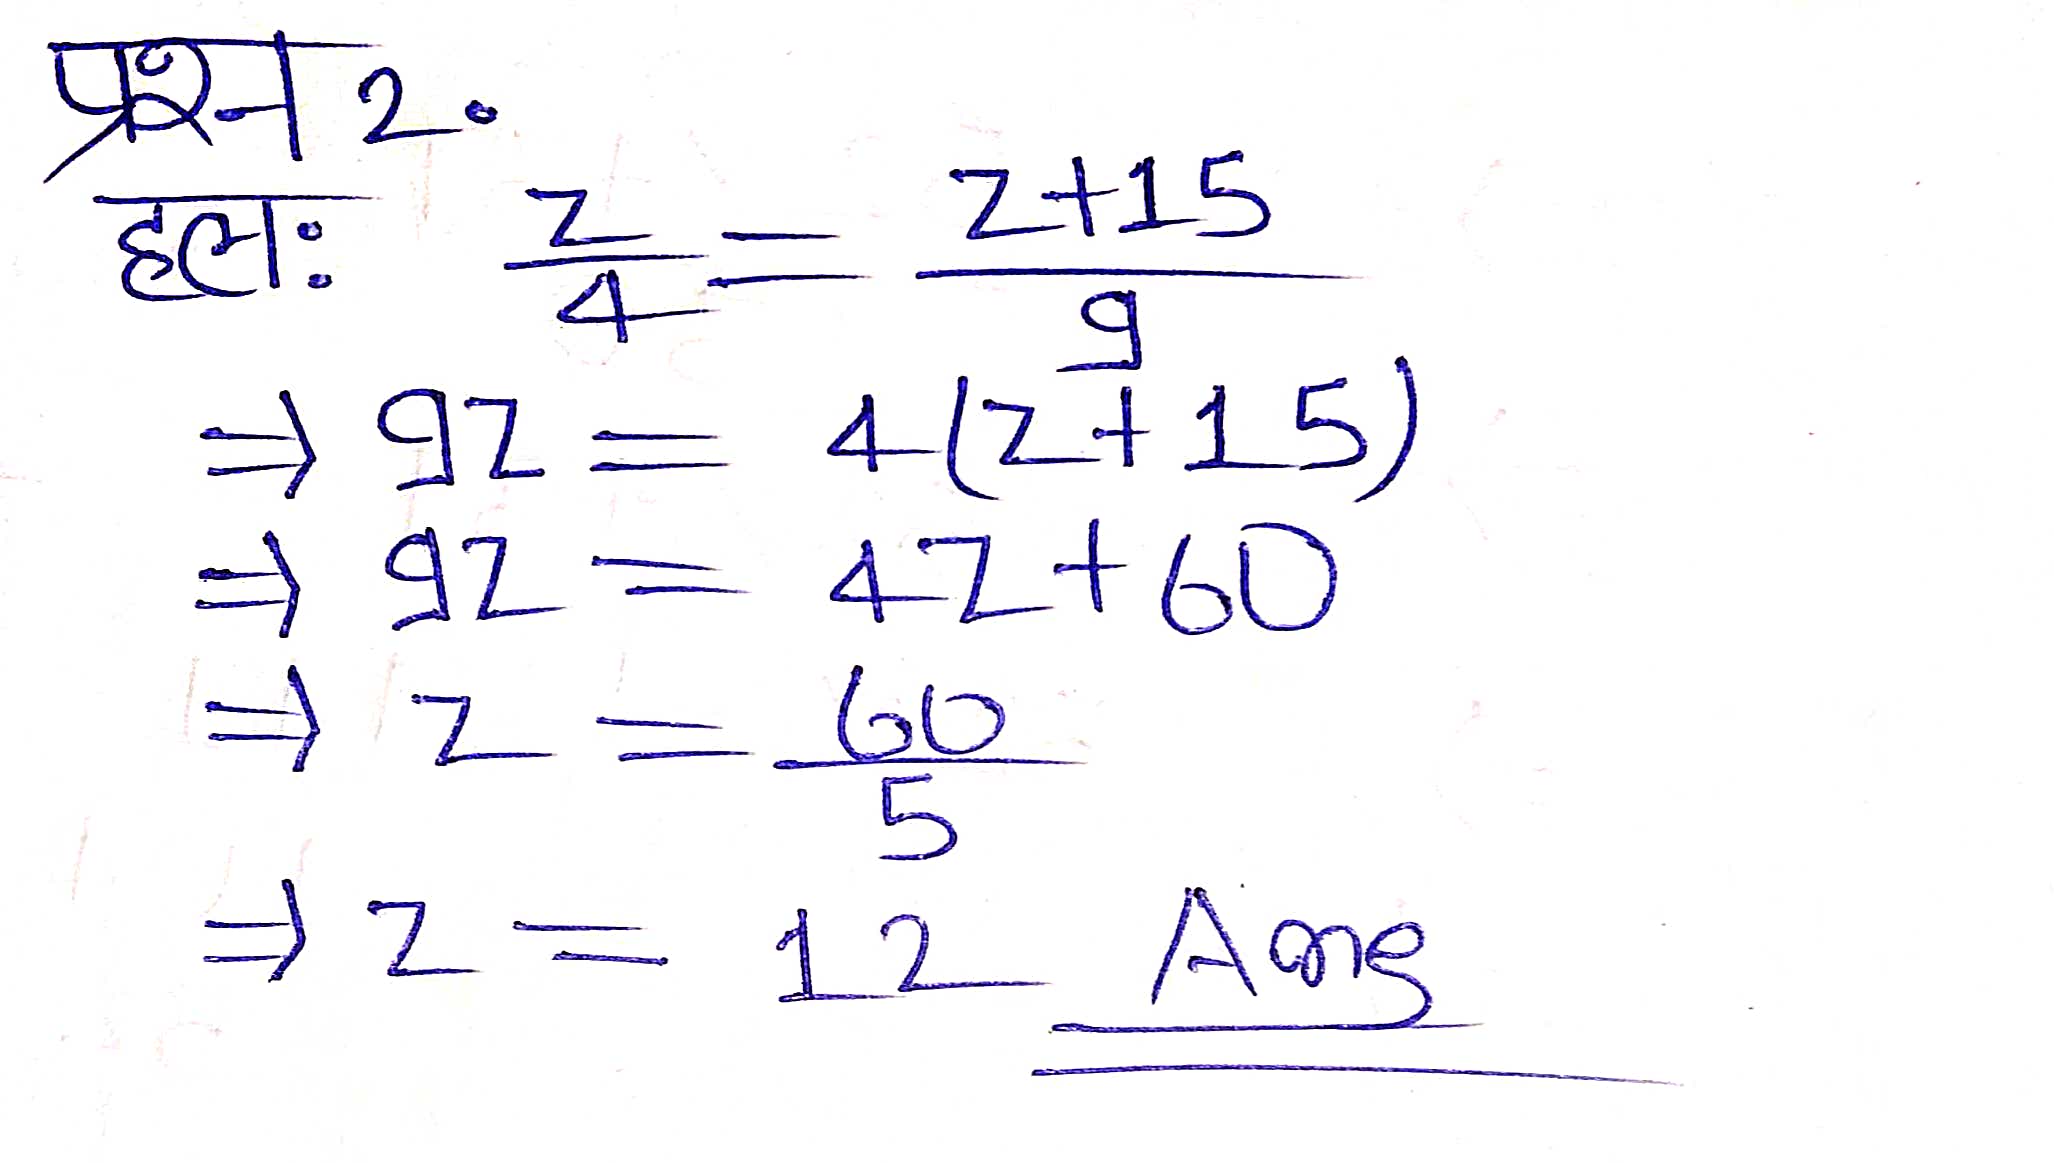 प्रश्न 2.
हलः z/4 = z+15/9
⇒ 9z = 4(z+15)
⇒ 9z = 4z+60
⇒ z = 60/5
⇒ z = 12 Ans